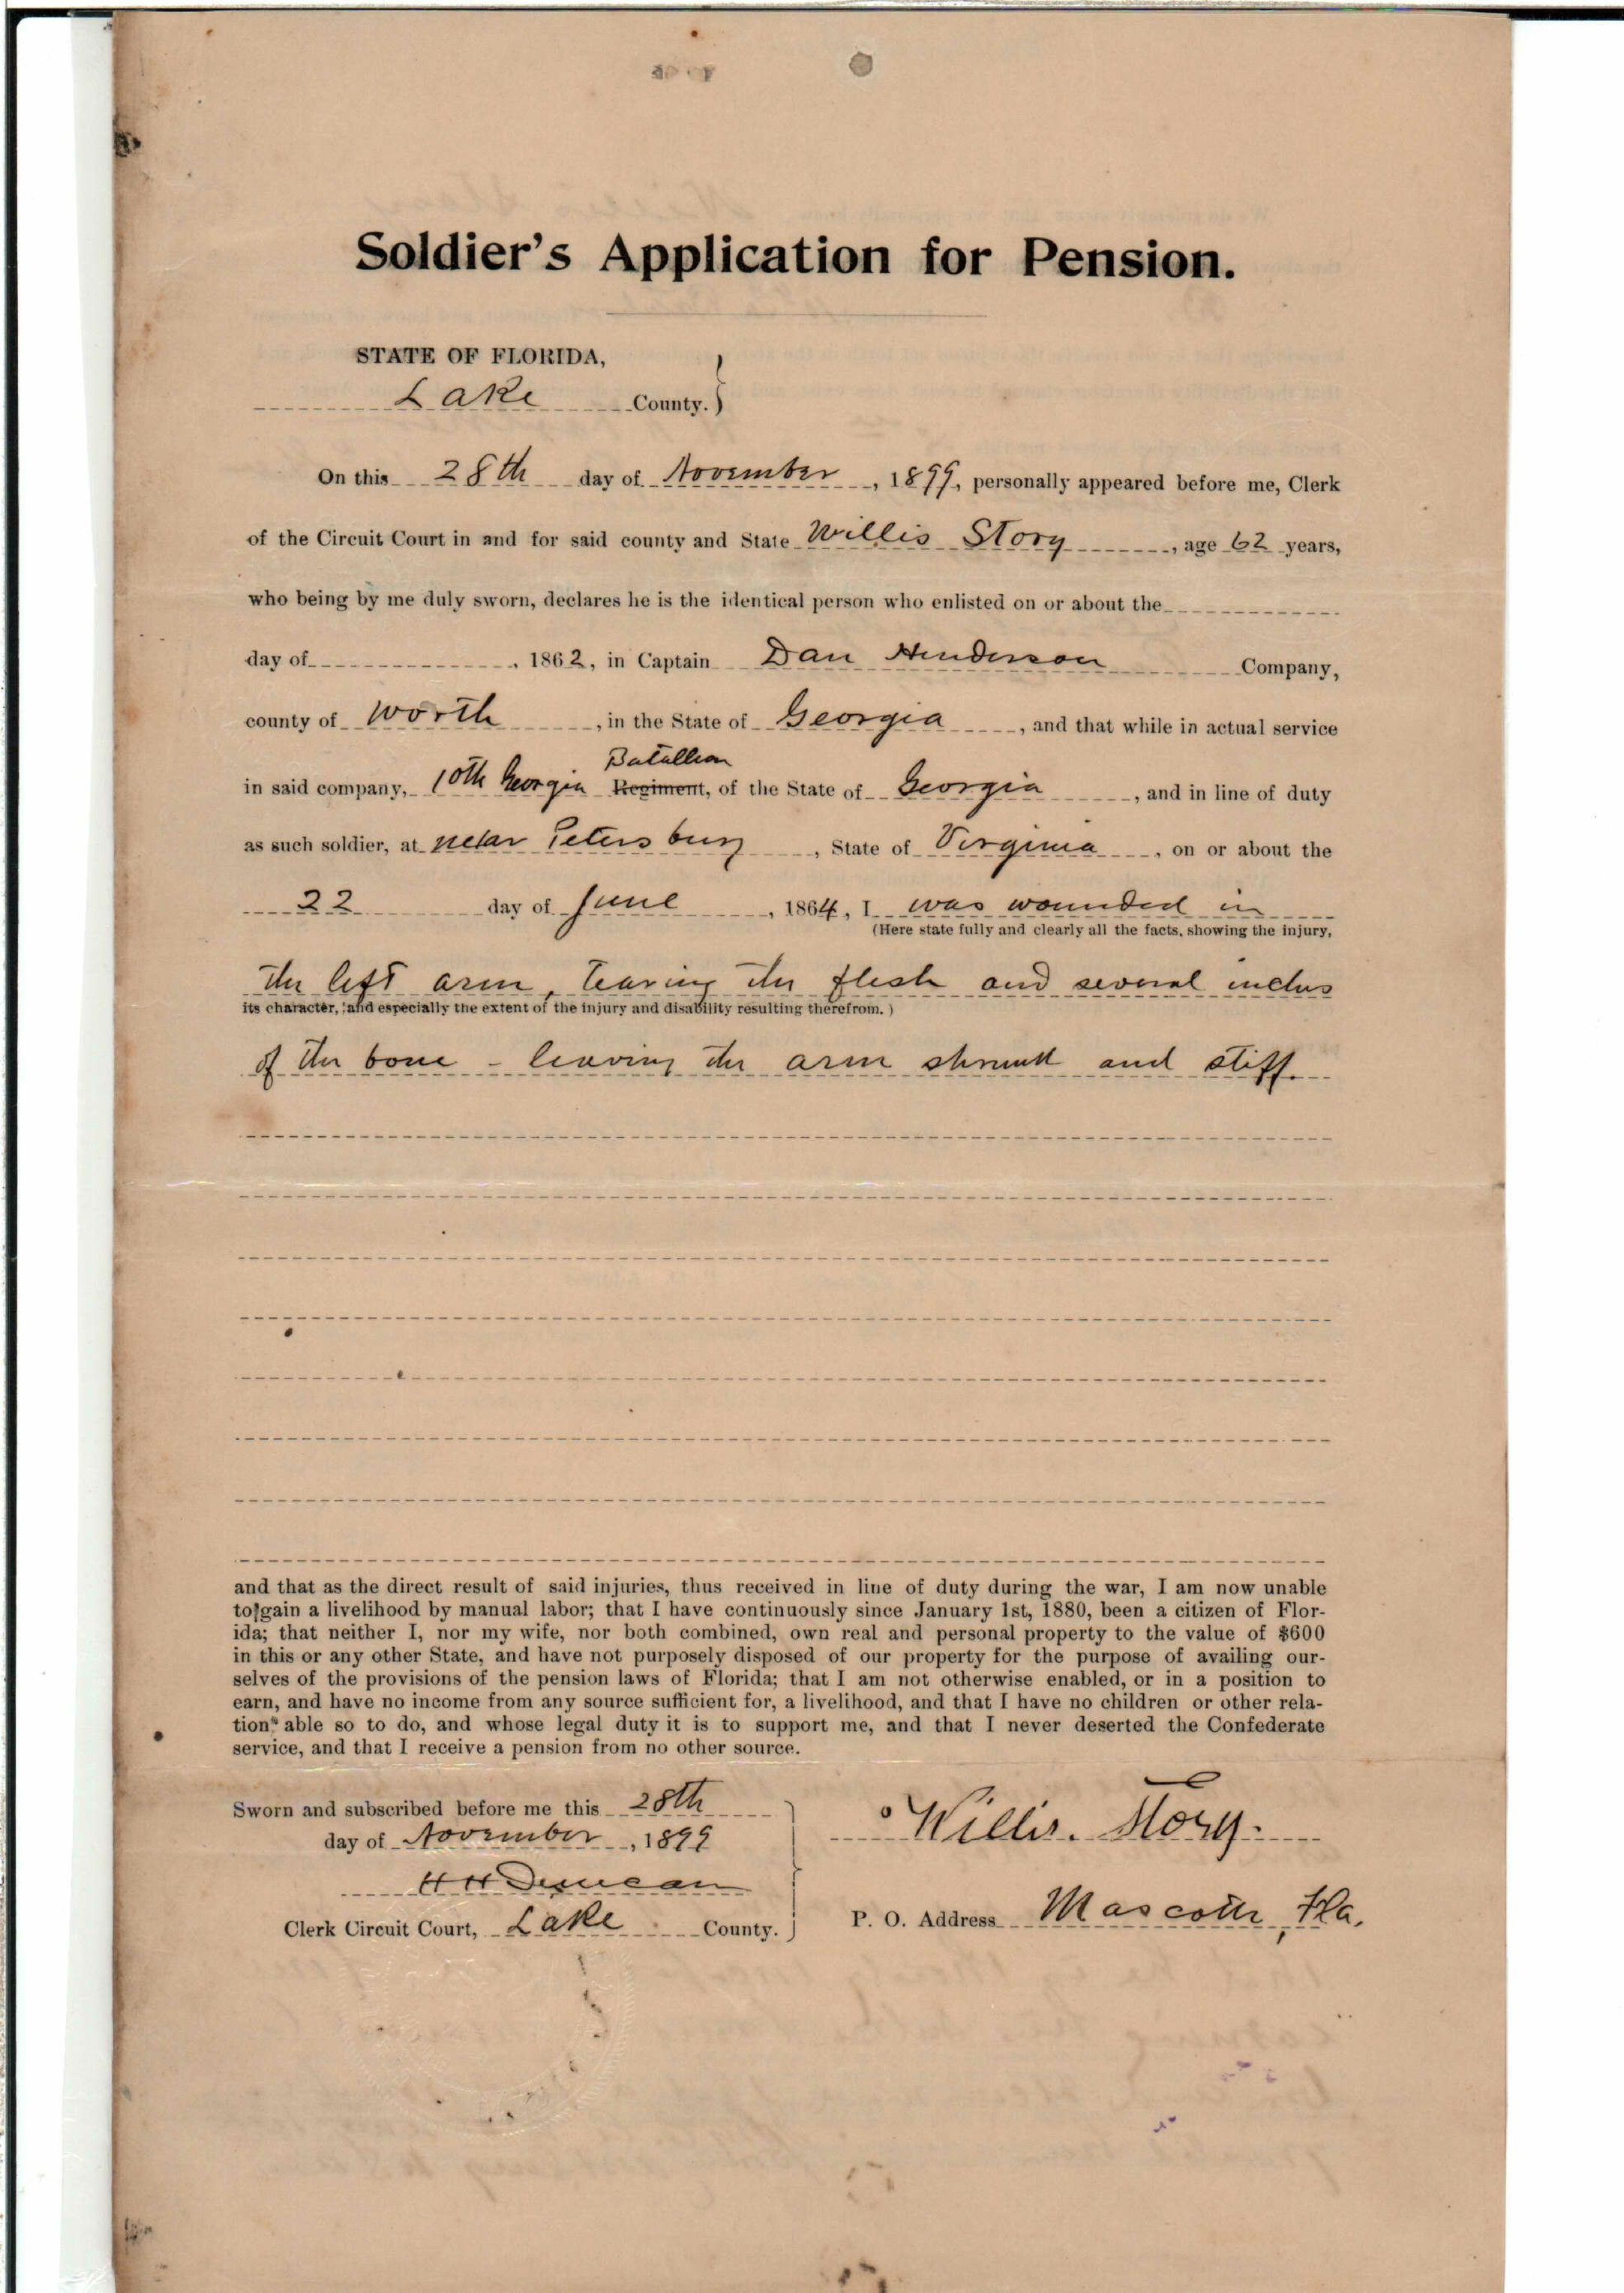 Soldier's Application for Pension.
STATE OF FLORIDA,
Lake County.
On this 28th day of November, 1899, personally appeared before me, Clerk
of the Circuit Court in and for said county and State Willis Story, age 62 years,
who being by me duly sworn, declares he is the identical person who enlisted on or about the
day of , 1862, in Captain Dan Henderson Company,
county of Worth, in the State of Georgia, and that while in actual service
Batallion
in said company, 10th Georgia Regiment, of the State of Georgia, and in line of duty
as such soldier, at near Petersburg, State of Virginia, on or about the
22 day of June, 1864, I was wounded in
(Here state fully and clearly all the facts, showing the injury,
the left arm, tearing the flesh and several inches
its character, and especially the extent of the injury and disability resulting therefrom.)
of the bone - leaving the arm shrunk and stiff.
and that as the direct result of said injuries, thus received in line of duty during the war, I am now unable
to gain a livelihood by manual labor; that I have continuously since January 1st, 1880, been a citizen of Flor-
ida; that neither I, nor my wife, nor both combined, own real and personal property to the value of $600
in this or any other State, and have not purposely disposed of our property for the purpose of availing our-
selves of the provisions of the pension laws of Florida; that I am not otherwise enabled, or in a position to
earn, and have no income from any source sufficient for, a livelihood, and that I have no children or other rela-
tions able so to do, and whose legal duty it is to support me, and that I never deserted the Confederate
service, and that I receive a pension from no other source.
Sworn and subscribed before me this 28th
day of November, 1899
Willis. Story.
H H Duncan
Clerk Circuit Court, Lake County.
P. O. Address Mascotte, Fla.